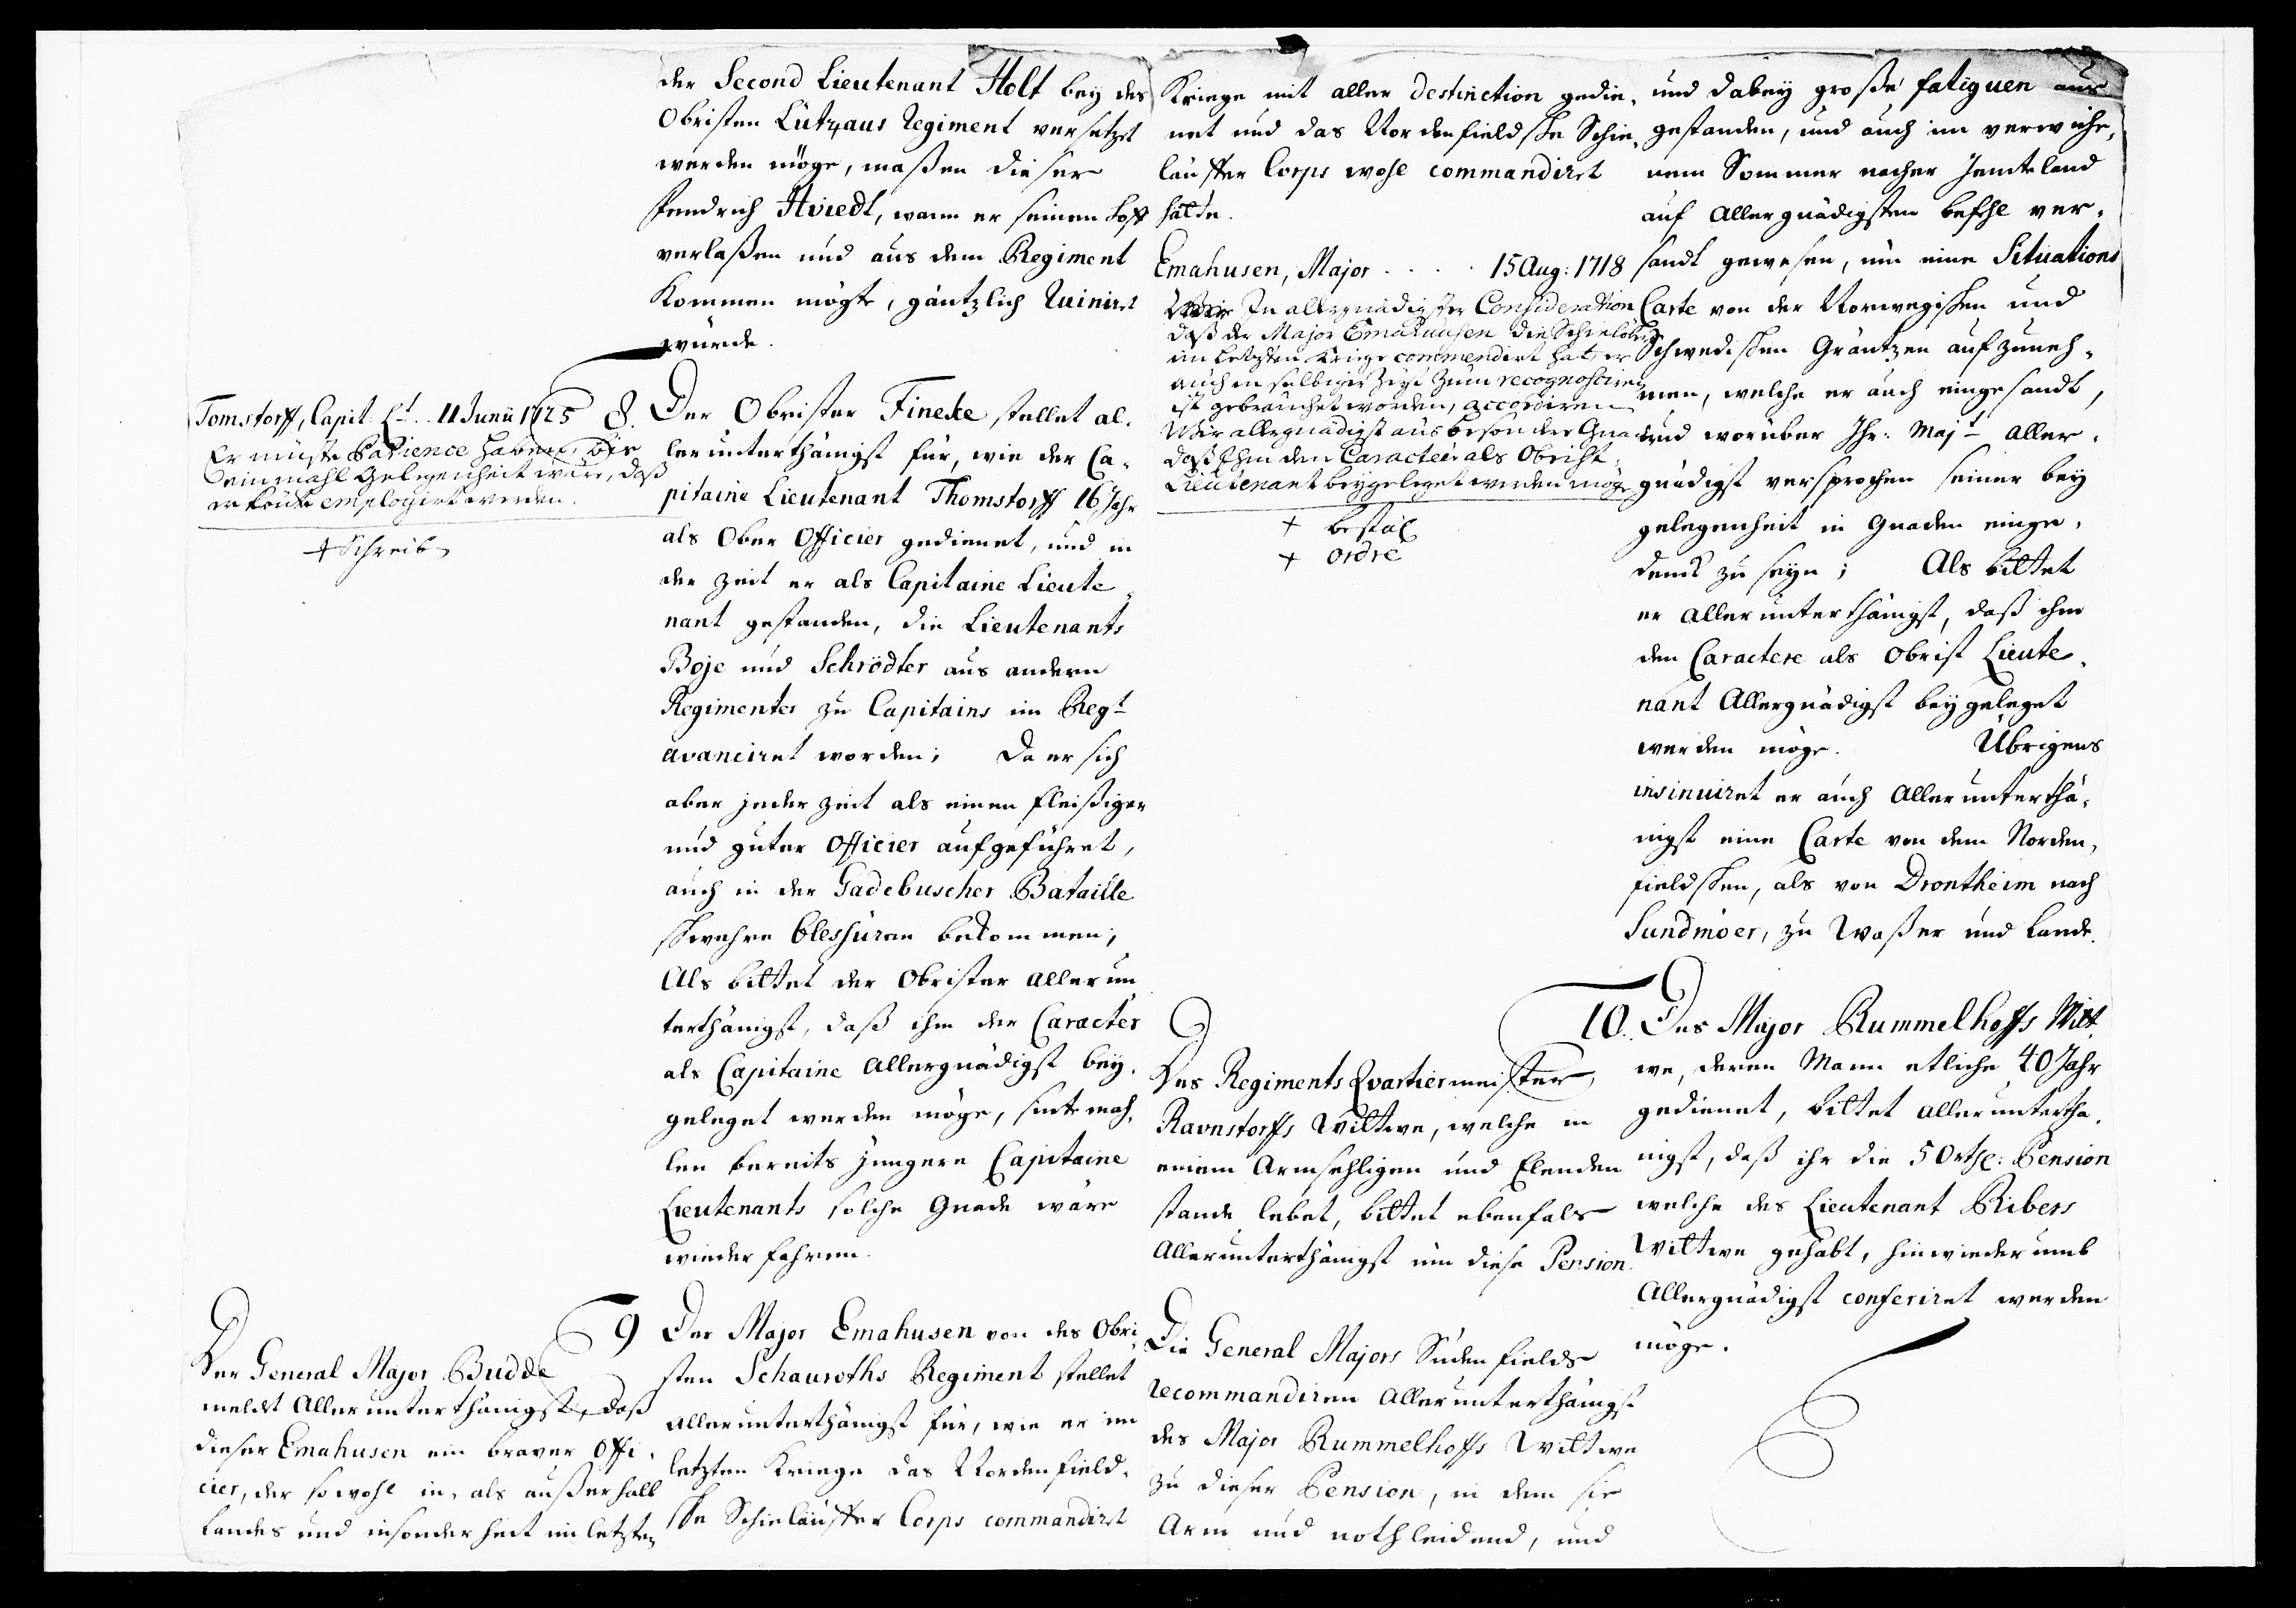 der Second Lieutenant Holt bey des
Obristen Lützaus Regiment versetzet
werden möge, maßen dieser
Fendrich Hviedt, wann er seinen Post
verlaßen und aus dem Regiment
kommen mögte, gäntzlich Ruiniret
würde.
Tomstorff, Capit: Lt. . 11 Junii 1725
Er müste Patience haben, bis
einmahl Gelegenheit wäre, daß
er könte employirt werden.
+ Schreib
8. Der Obrister Finecke stellet al„
lerunterthänigst für, wie der Ca„
pitaine Lieutenant Thomstorff 16 Jahr
als Ober Officier gedienet, und in
der Zeit er als Capitaine Lieute„
nant gestanden, die Lieutenants
Boje und Schrödter aus andern
Regimenter zu Capitains im Regt
avanciret worden; Da er sich
aber jeder Zeit als einen fleißiger
und guter Officier aufgeführet,
auch in der Gadebuscher Bataille
schwehre blessuren bekommen;
Als bittet der Obrister allerun„
terthänigst, daß ihm der Caracter
als Capitaine Allergnädigst bey„
geleget werden möge, sintemah„
len bereits jüngere Capitaine
Lieutenants solche Gnade wäre
wiederfahren.
Der General Major Budde
meldet Allerunterthänigst, daß
dieser Emahusen ein braver Offi„
cier, der sowohl in, als außerhalb
Landes und insonderheit im letzten
9 Der Major Emahusen von des Obri„
sten Schauroths Regiment stellet
allerunterthänigst für, wie er im
letzten Kriege das Nordenfield„
ske Schieläuffer Corps commandiret
Kriege mit aller destinction gedie„
net und das Nordenfieldske Schie„
läuffer Corps wohl commandiret
hätte.
Emahusen, Major . . . . 15 Aug: 1718
In allergnädigster Consideration
daß der Major Emahusen die Schielöber
im letzten Kriege commendirt hat, er
auch in selbiger Zeit zum recognosciren
ist gebrauchet worden, accordiren
Wir allergnädigst aus besonder Gnade
daß Ihm den Caracter als Obrist
Lieutenant beygeleget werden möge
+ bestal
+ ordre
Des Regiments Qvartiermeister
Ravnstorffs Wittwe, welche in
einem Armsehligen und Elenden
stande lebet, bittet ebenfals
Allerunterthänigst um diese Pension.
Die General Majors Südenfields
recommandiren Allerunterthänigst
des Major Rummelhoffs Wittwe
zu dieser Pension, in dem sie
Arm und nothleidend, und
und dabey große fatiguen aus„
gestanden, und auch im verwiche„
nem Sommer nacher Jemteland
auf Allergnädigsten befehl ver„
sandt gewesen, um eine Situations
Carte von der Norwegischen und
Schwedischen Gräntzen aufzuneh„
men, welche er auch eingesandt,
und worüber Ihr: Majt aller„
gnädigst versprochen seiner bey
gelegenheit in Gnaden einge„
denck zu seyn; Als bittet
er allerunterthänigst, daß ihm
den Caractere als Obrist Lieute„
nant Allergnädigst beygeleget
werden möge. Übrigens
insinuiret er auch Allerunterthä„
nigst eine Carte von dem Norden„
fieldsken, als von Drontheim nach
Sundmöer, zu Waßer und Lande.
10. Des Major Rummelhoffs Witt„
we, deren Mann etliche 40 Jahr
gedienet, bittet allerunterthä„
nigst, daß ihr die 50 rthl: Pension
welche des Lieutenant Ribers
Wittwe gehabt, hinwiederumb
Allergnädigst conferiret werden
möge.